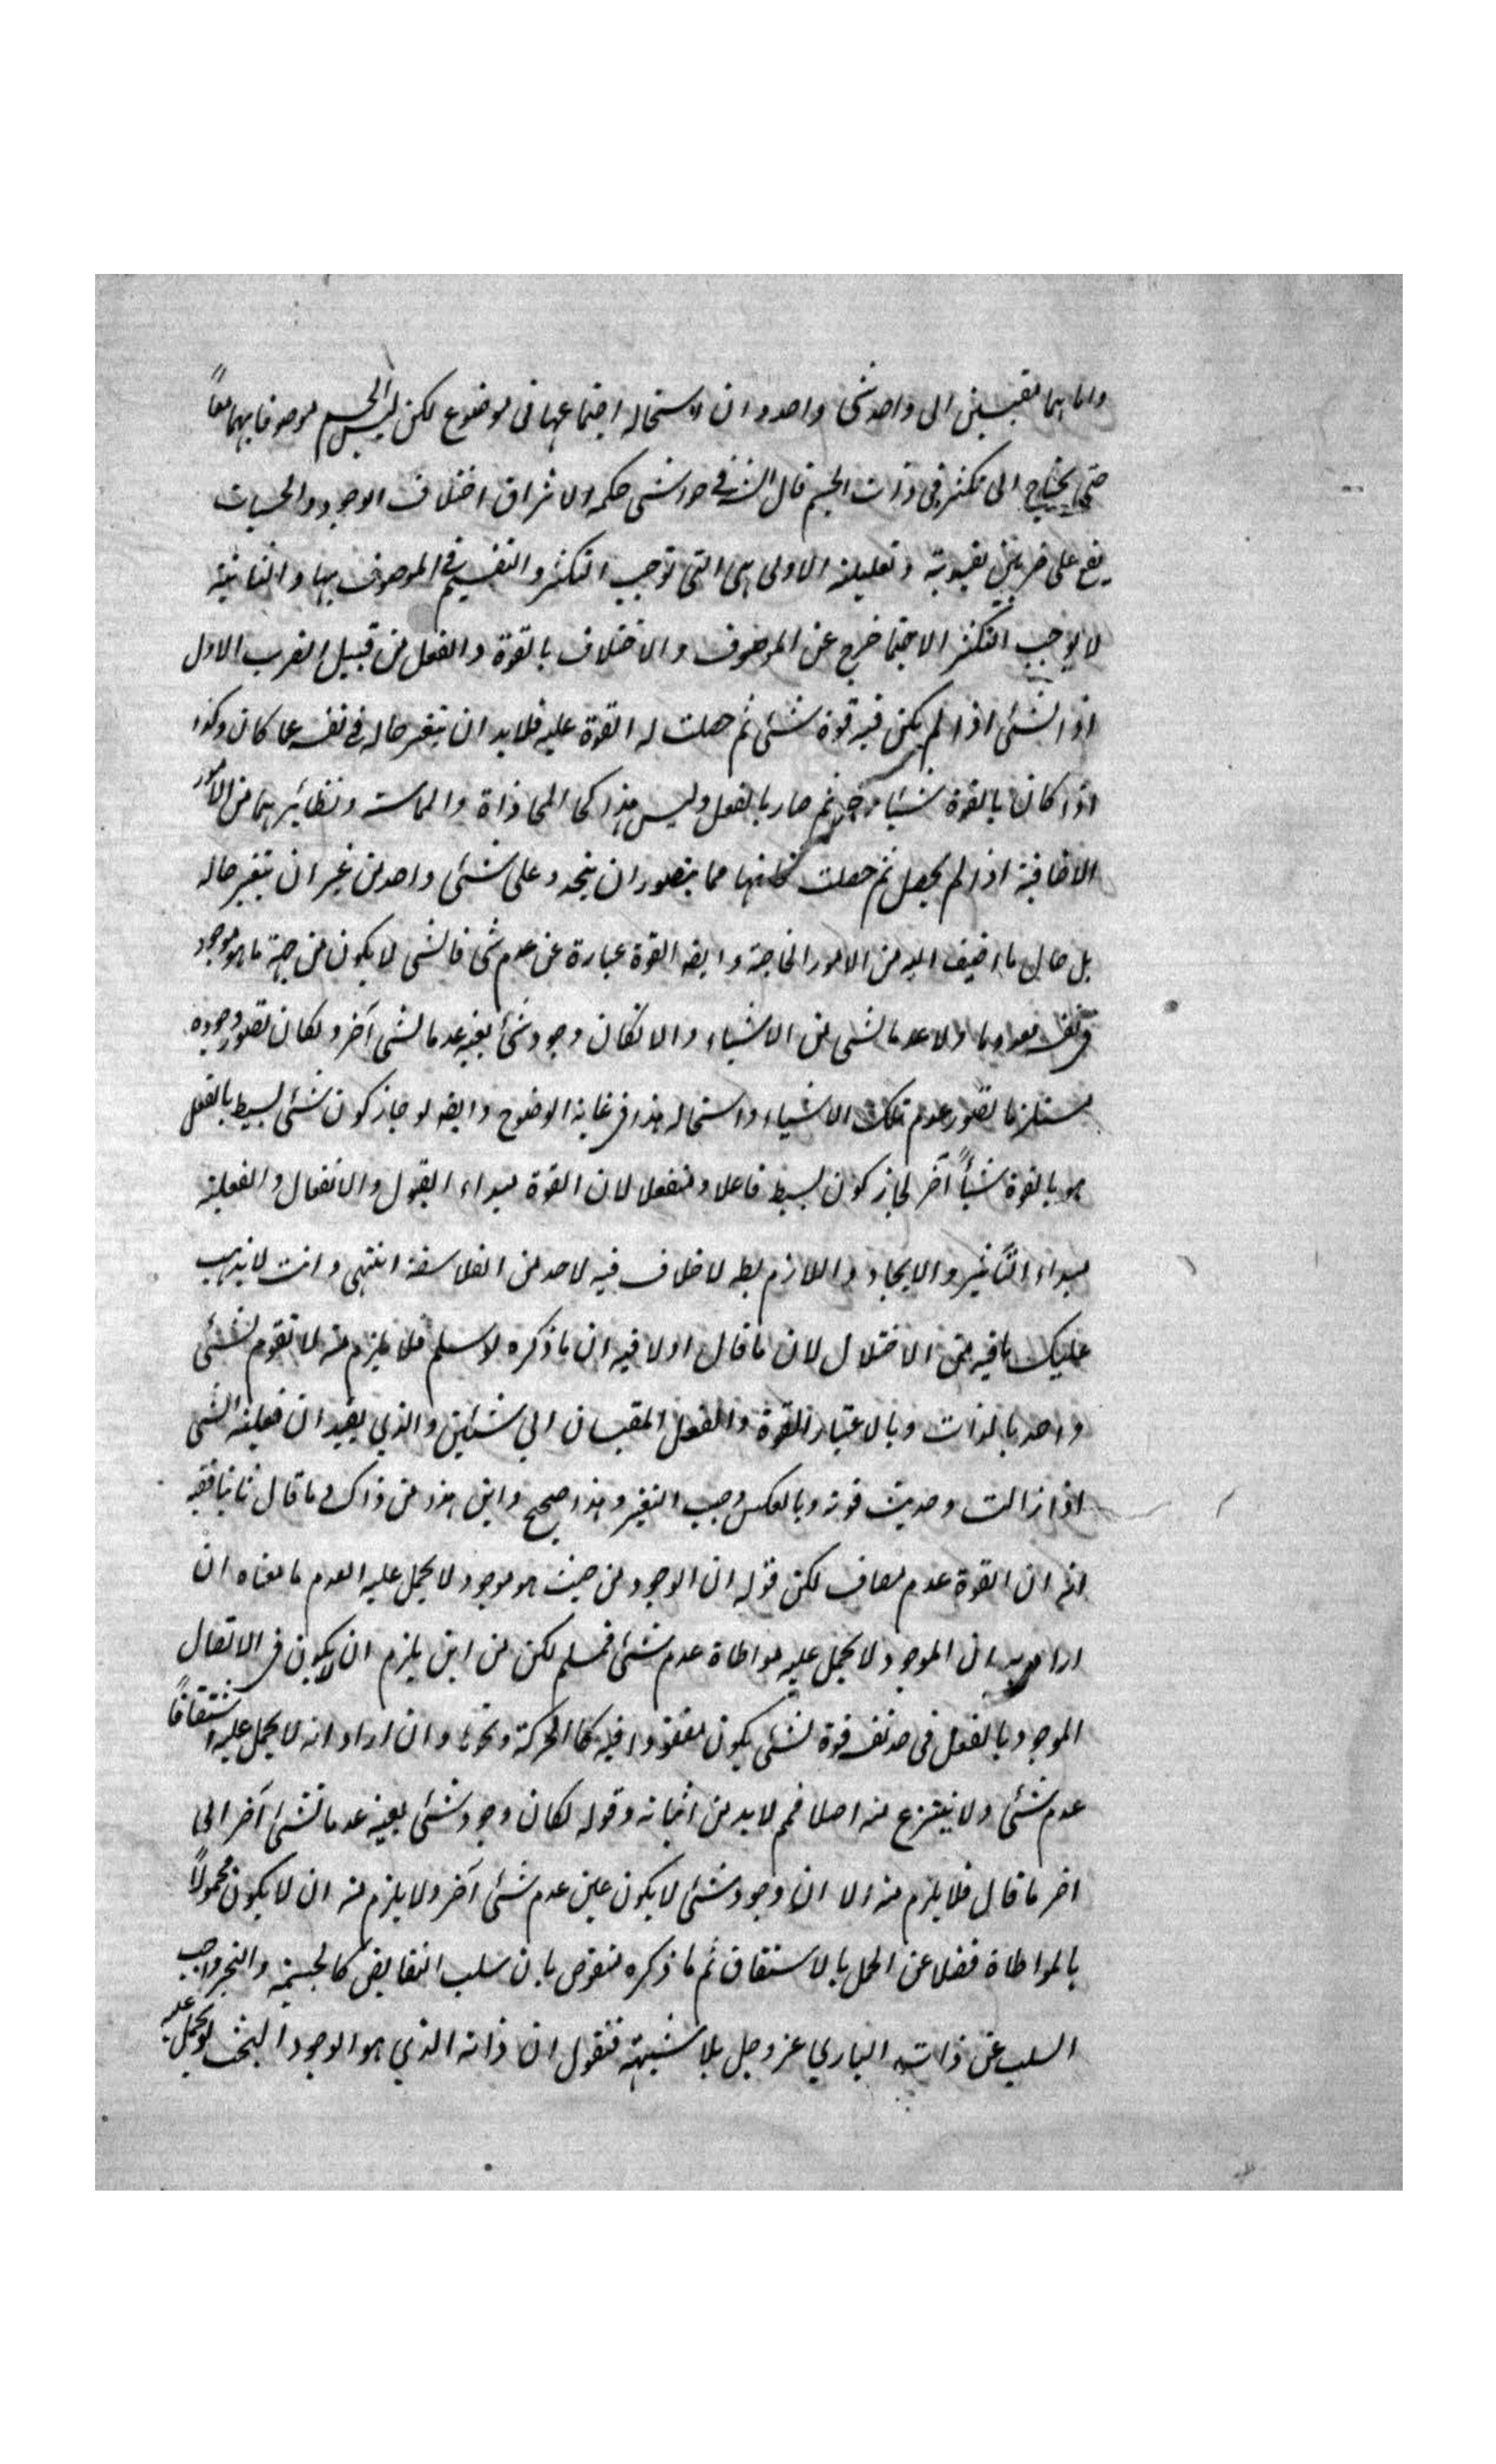 واما هما مقيسين الى واحد شئ واحد وان استحال اجتماعهما فى موضوع لكن ليس الجسم موصوفا بهما معاً
حتى يحتاج الى تكثر فى ذات الجسم قال الش فى حواشى حكمة الاشراق اختلاف الوجوه والحيثيات
يقع على ضربين تقييدية وتعليلية الاولى هى التى توجب التكثر والتقسيم فى الموصوف بها والثانية
لا يوجب التكثر الا فيما خرج عن الموصوف والاختلاف بالقوة والفعل من قبيل الضرب الاول
اذ الشئ اذا لم يكن فيه قوة شئ ثم حصلت له القوة عليه فلابد ان يتغير حاله فى نفسه عما كان وكذا
اذا كان بالقوة شيئا آخر ثم صار بالفعل وليس هذا كالمحاذاة والمماسة ونظائرهما من الامور
الاضافية اذا لم يحصل ثم حصلت فانها مما يتصور ان يتجدد على شئ واحد من غير ان يتغير حاله
بل حال ما اضيف اليه من الامور الخارجة وايضه القوة عبارة عن عدم شئ فالشئ لا يكون من جهة ما هو موجود
فى نفسه معدوما ولا عدما لشئ من الاشياء والا لكان وجود شئ بعينه عدما لشئ آخر ولكان تصور وجوده
مستلزما لتصور عدم تلك الاشياء واستحالة هذا فى غاية الوضوح وايضه لو جاز كون شئ بسيط بالفعل
هو بالقوة شيئاً آخر لجاز كون بسيط فاعلا ومنفعلا لان القوة مبداء القبول والانفعال والفعلية
مبداء التأثير والايجاد واللازم بطه لا خلاف فيه لاحد من الفلاسفة انتهى وانت لا يذهب
عليك ما فيه من الاختلال لان ما قال اولا فيه ان ما ذكره لو سلم فلا يلزم منه الا تقوم لشئ
واحد بالذات وبالاعتبار القوة والفعل المقيسان الى شيئين والذي يفيد ان فعلية الشئ
اذا زالت وحدثت قوته وبالعكس وجب التغير وهذا صحيح واين هذا من ذاك وما قال ثانيا ففيه
انه ان القوة عدم مضاف لكن قوله ان الوجود من حيث هو موجود لا يحمل عليه العدم ما معناه ان
اراد به ان الموجود لا يحمل عليه مواطاة عدم شئ فمسلم لكن من اين يلزم ان لا يكون فى الاتصال
الموجود بالفعل فى حد نفسه قوة لشئ يكون مفقودا فيه كالحركة ونحوها وان اراد انه لا يحمل عليه اشتقاقاً
عدم شئ ولا ينتزع منه اصلا فمم لابد من اثباته وقوله لكان وجود شئ بعينه عدما لشئ آخر الى
اخر ما قال فلا يلزم منه الا ان وجود شئ لا يكون عين عدم شئ آخر ولا يلزم منه ان لا يكون محمولاً
بالمواطاة فضلا عن الحمل بالاشتقاق ثم ما ذكره منقوض بان سلب النقايص كالجسمية والتحيز واجب
السلب عن ذات البارى عز وجل بلا شبهة فنقول ان ذاته الذي هو الوجود البحث لو يحمل عليه